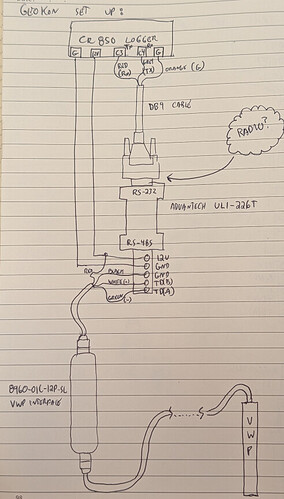 GEOKON SET UP:
CR 850 LOGGER
G 12V C3 C4 G
TX RX
RED (RX) GREY (TX) ORANGE (G)
DB9 CABLE
RADIO?
RS-232
ADVANTECH ULI-226T
RS-485
12V
RED BLACK GND
WHITE(+) GND
GREEN(-) TD(B)
TD(A)
8960-01C-12P-SL
VWP INTERFACE
VWP